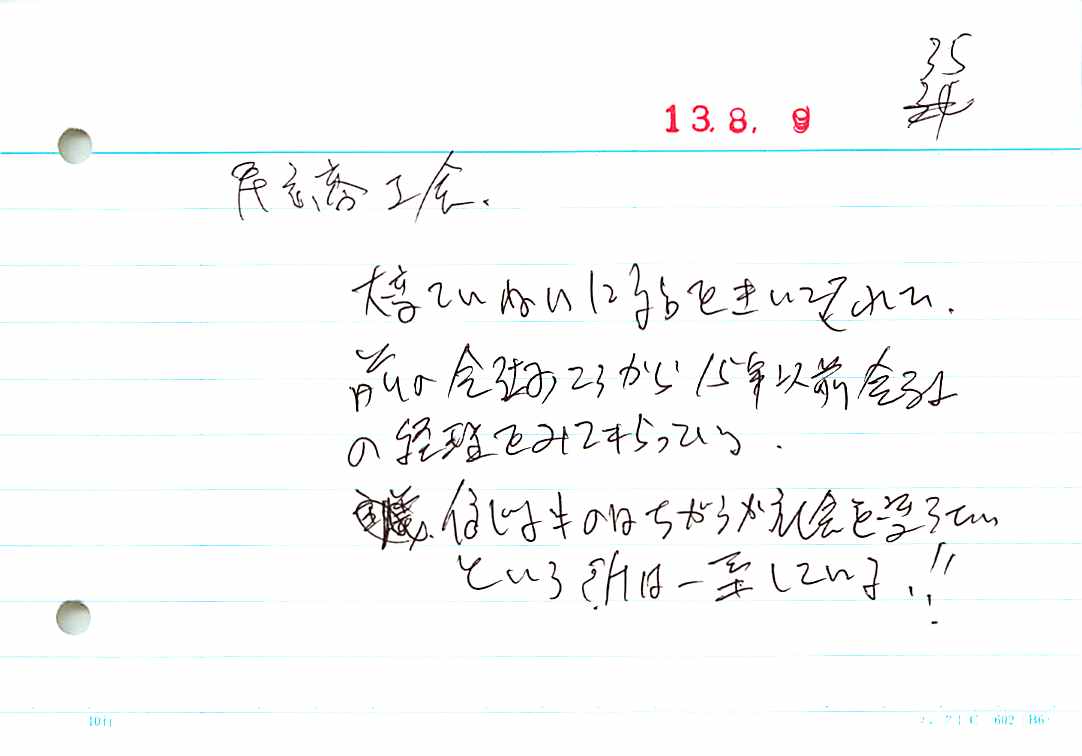 35
13.8.9
民主商工会.
大変ていねいに話をきいてくれた.
前の会社のころから15年以前会社
の経理をみてもらっている.
信じるものはちがうが社会を変えたい
という所は一致している!!
コクヨ 602 B6